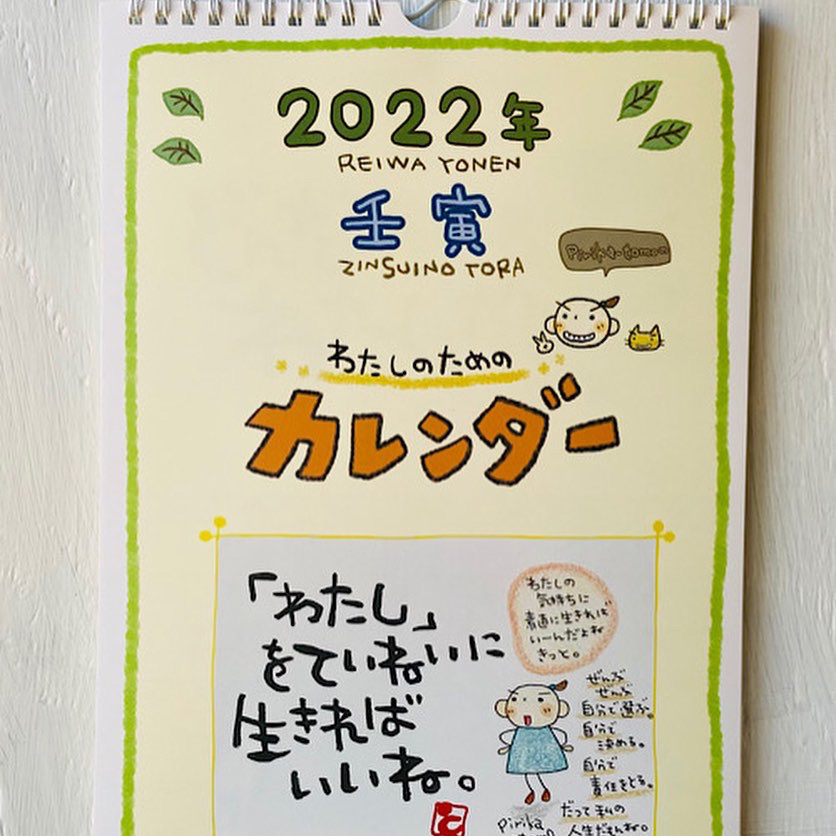 2022年
REIWA YONEN
壬寅
ZINSUINO TORA
Pirika-tomon
わたしのための
カレンダー
「わたし」
をていねいに
生きれば
いいね。
と
わたしの
気持ちに
素直に生きれば
いーんだよね
きっと。
ぜんぶ
ぜんぶ
自分で選ぶ。
自分で
決める。
自分で
責任をとる。
だって私の
人生だもんね。
Pirika